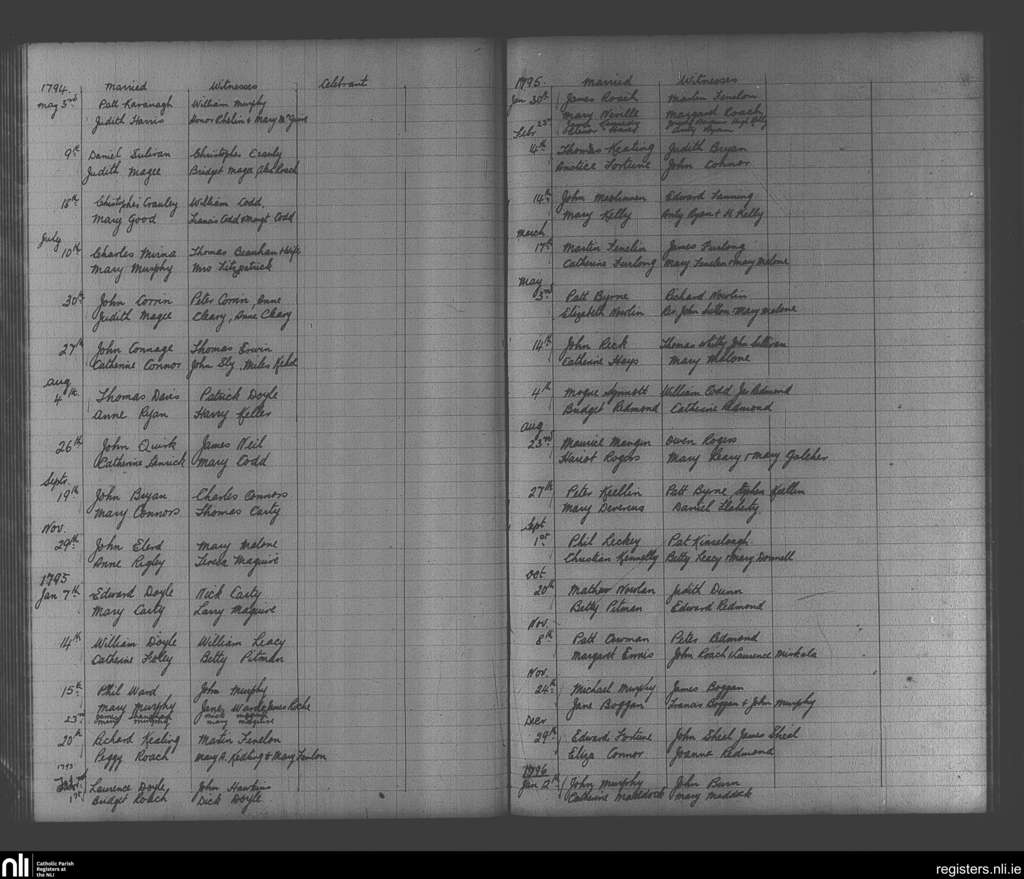 1794. Married Witnesses Celebrant
May 5 Patt Kavanagh William Murphy
Judith Harris Honor Phelin & Mary
9th Daniel Sulivan Christopher Crauly
Judith Magee Bridget Maga
18th Christopher Crauley William Codd,
Mary Good Francis Codd & Margt Codd
July
10th Charles Mirna Thomas Beauhan & wife
Mary Murphy Mrs Fitzpatrick
30th John Corrin Peter Corrin, Anne
Judith Magee Cleary, Anne Cleary
27th John Connage Thomas Erwin
Catherine Connor John Ely, Miles
Aug
4th Thomas Davis Patrick Doyle
Anne Ryan Harry
26th John Quirk James Neil
Catherine Mary Codd
Septr.
19th John Bryan Charles Connors
Mary Connors Thomas Carty
Nov.
29th John Mary Malone
Anne Rigley Teresa Maguire
1795
Jan 7th Edward Doyle Nick Carty
Mary Carty Larry Maguire
14th William Doyle William Leacy
Catherine Foley Betty Pitman
15th Phil Ward John Murphy
Mary Murphy Janey Ward & James Roche
23rd
mary murphy mary maguire
20th Richard Keating Martin Fenelon
Peggy Roach Mary A. Keating & Mary Fenlon
Laurence Doyle John Hawkins
1st Bridget Roach Dick Doyle
1795. Married Witnesses
Jan 30th James Roach Martin Fenelon
Mary Neville Margaret Roach
Febr 23rd
4th Thomas Keating Judith Bryan
Anstice Fortune John Connor
14th John Edward Fanning
Mary Kelly Andy Ryan & Kelly
March
17th Martin Fenelin James Furlong
Catherine Furlong Mary Fenelen & Mary Malone
May
3rd Patt Byrne Richard Nowlin
Elizabeth Nowlin Rev. John Sutton & Mary Malone
14th John Peck Thomas Whitty John Sullivan
Catherine Hays Mary Malone
4th Mogue Synnott William Codd Redmond
Bridget Redmond Catherine Redmond
Aug
23rd Maurice Mangin Owen Rogers
Hariot Rogers Mary Leary & Mary Galeher
27th Peter Keellin Patt Byrne, Stephen Keellin
Mary Devereus Daniel Flaherty
Sept
1st Phil Leckey Pat Kinselagh
Christian Kennelly Betty Leacy & Mary Donnell
Oct
20th Mathew Nowlan Judith Dunn
Betty Pitman Edward Redmond
Nov.
8th Patt Cowman Peter Redmond
Margaret Ennis John Roach & Laurence
Nov.
24th Michael Murphy James Boggan
Jane Boggan Francis Boggan & John Murphy
Decr
29th Edward Fortune John Sheil James Sheil
Eliza Connor Joanna Redmond
1796
Jan 2nd John Murphy John Burn
Catherine Maddock Mary Maddock
nli
Catholic Parish
Registers at
the NLI
registers.nli.ie